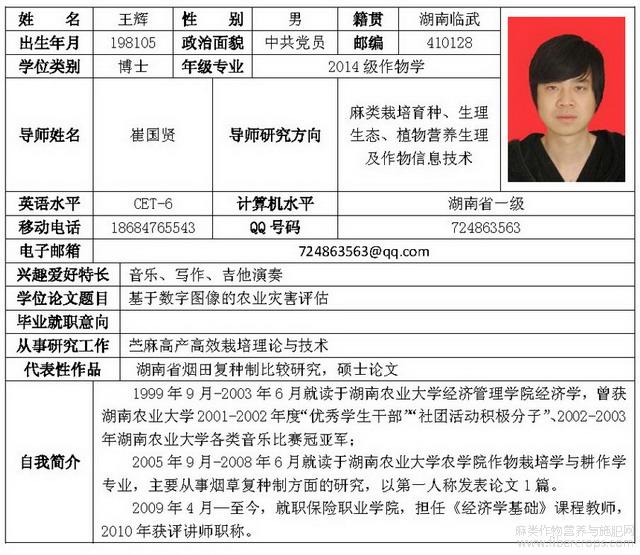 姓 名 王辉 性 别 男 籍贯 湖南临武
出生年月 198105 政治面貌 中共党员 邮编 410128
学位类别 博士 年级专业 2014级作物学
导师姓名 崔国贤 导师研究方向 麻类栽培育种、生理
生态、植物营养生理
及作物信息技术
英语水平 CET-6 计算机水平 湖南省一级
移动电话 18684765543 QQ 号码 724863563
电子邮箱 724863563@qq.com
兴趣爱好特长 音乐、写作、吉他演奏
学位论文题目 基于数字图像的农业灾害评估
毕业就职意向
从事研究工作 苎麻高产高效栽培理论与技术
代表性作品 湖南省烟田复种制比较研究，硕士论文
自我简介
1999年9月-2003年6月就读于湖南农业大学经济管理学院经济学，曾获
湖南农业大学2001-2002年度“优秀学生干部”“社团活动积极分子”、2002-2003
年湖南农业大学各类音乐比赛冠亚军；
2005年9月-2008年6月就读于湖南农业大学农学院作物栽培学与耕作学
专业，主要从事烟草复种制方面的研究，以第一人称发表论文1篇。
2009年4月—至今，就职保险职业学院，担任《经济学基础》课程教师，
2010年获评讲师职称。
麻类作物营养与施肥网
www.fibercrops.com